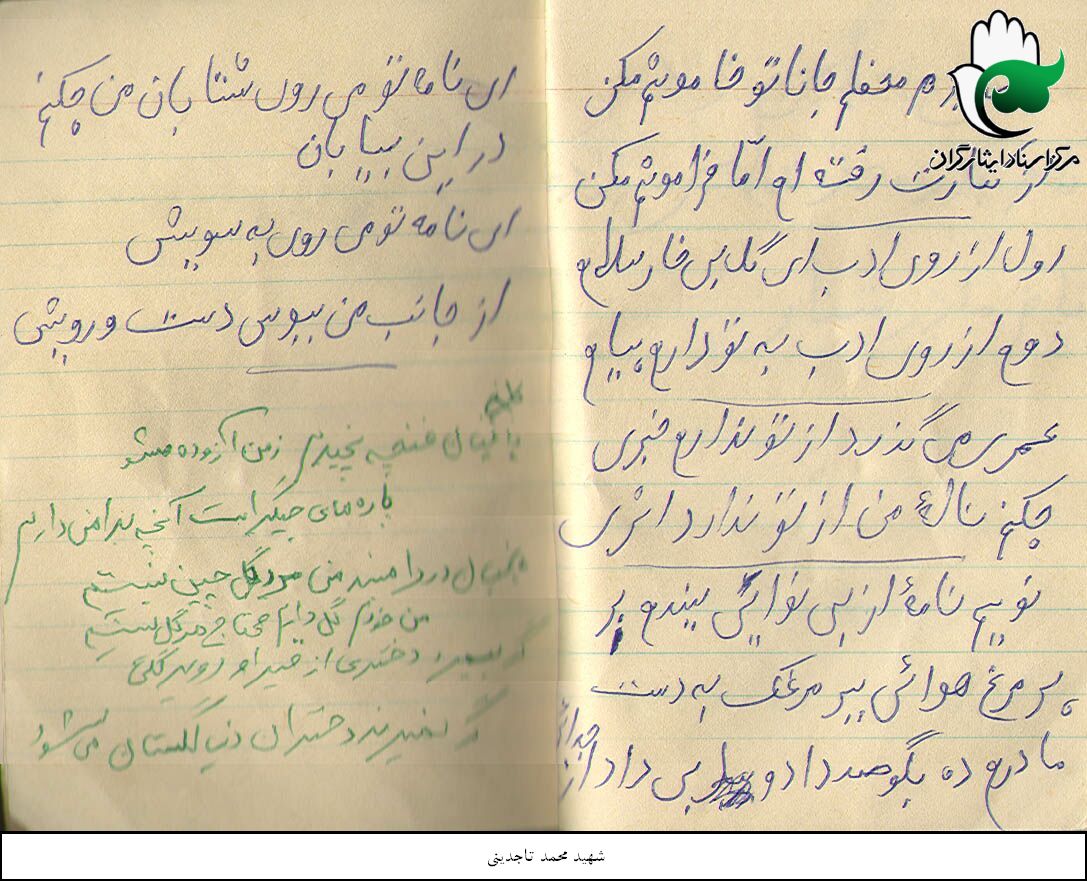 مرکز اسناد ایثارگران
محفلم جانا تو خاموشم مکن
از کنارت رفته ام امّا فراموشم مکن
اول از روی ادب ای گل بی خار سلام
دوم از روی ادب به تو دارم پیام
عمری می گذرد از تو ندارم خبری
چکنم نالهٔ من از تو ندارد اثری
نویسم نامهٔ از بی نوائی بندم بر
پر مرغ هوائی ببر مرغک به دست
مادرم ده بگو صد داد و بی داد از جدائی
ای نامه تو می روی شتابان من چکنم
در این بیابان
ای نامه تو می روی به سویش
از جانب من ببوس دست و رویش
باغبان غنچه نچیدم زمن آزوده مشو
پاره های جیگر است آنچه بدامن داریم
باغبان در را مبند من مرد گل چین نیستم
من خودم گل دارم محتاج هر گل نیستم
گر بمیرد دختری از قبر او روید گلی
گر بمیرند دختران دنیا گلستان می شود
شهید محمد تاجدینی